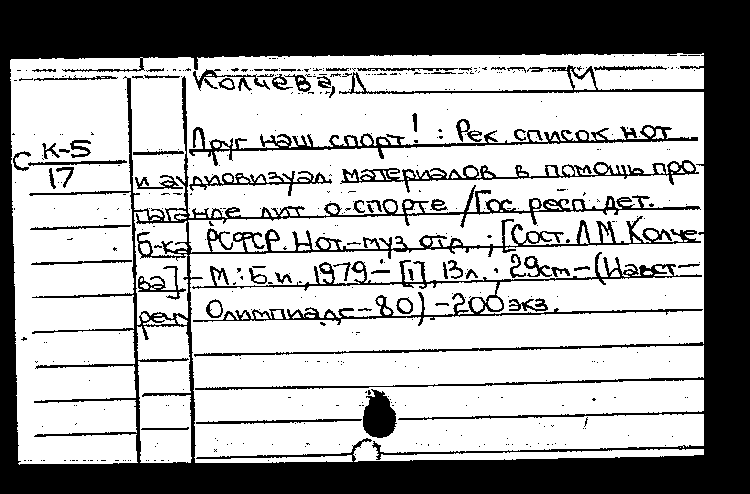 Колчева, Л М
Друг наш спорт! : Рек. список нот
С К-5
17
и аудиовизуал. материалов в помощь про-
паганде лит. о спорте / Гос. респ. дет.
б-ка РСФСР. Нот.-муз. отд. ; [Сост. Л.М. Колче-
ва] – М. : Б.и., 1979. – [1], 13л. ; 29см – (Навст-
речу Олимпиаде – 80) – 200 экз.